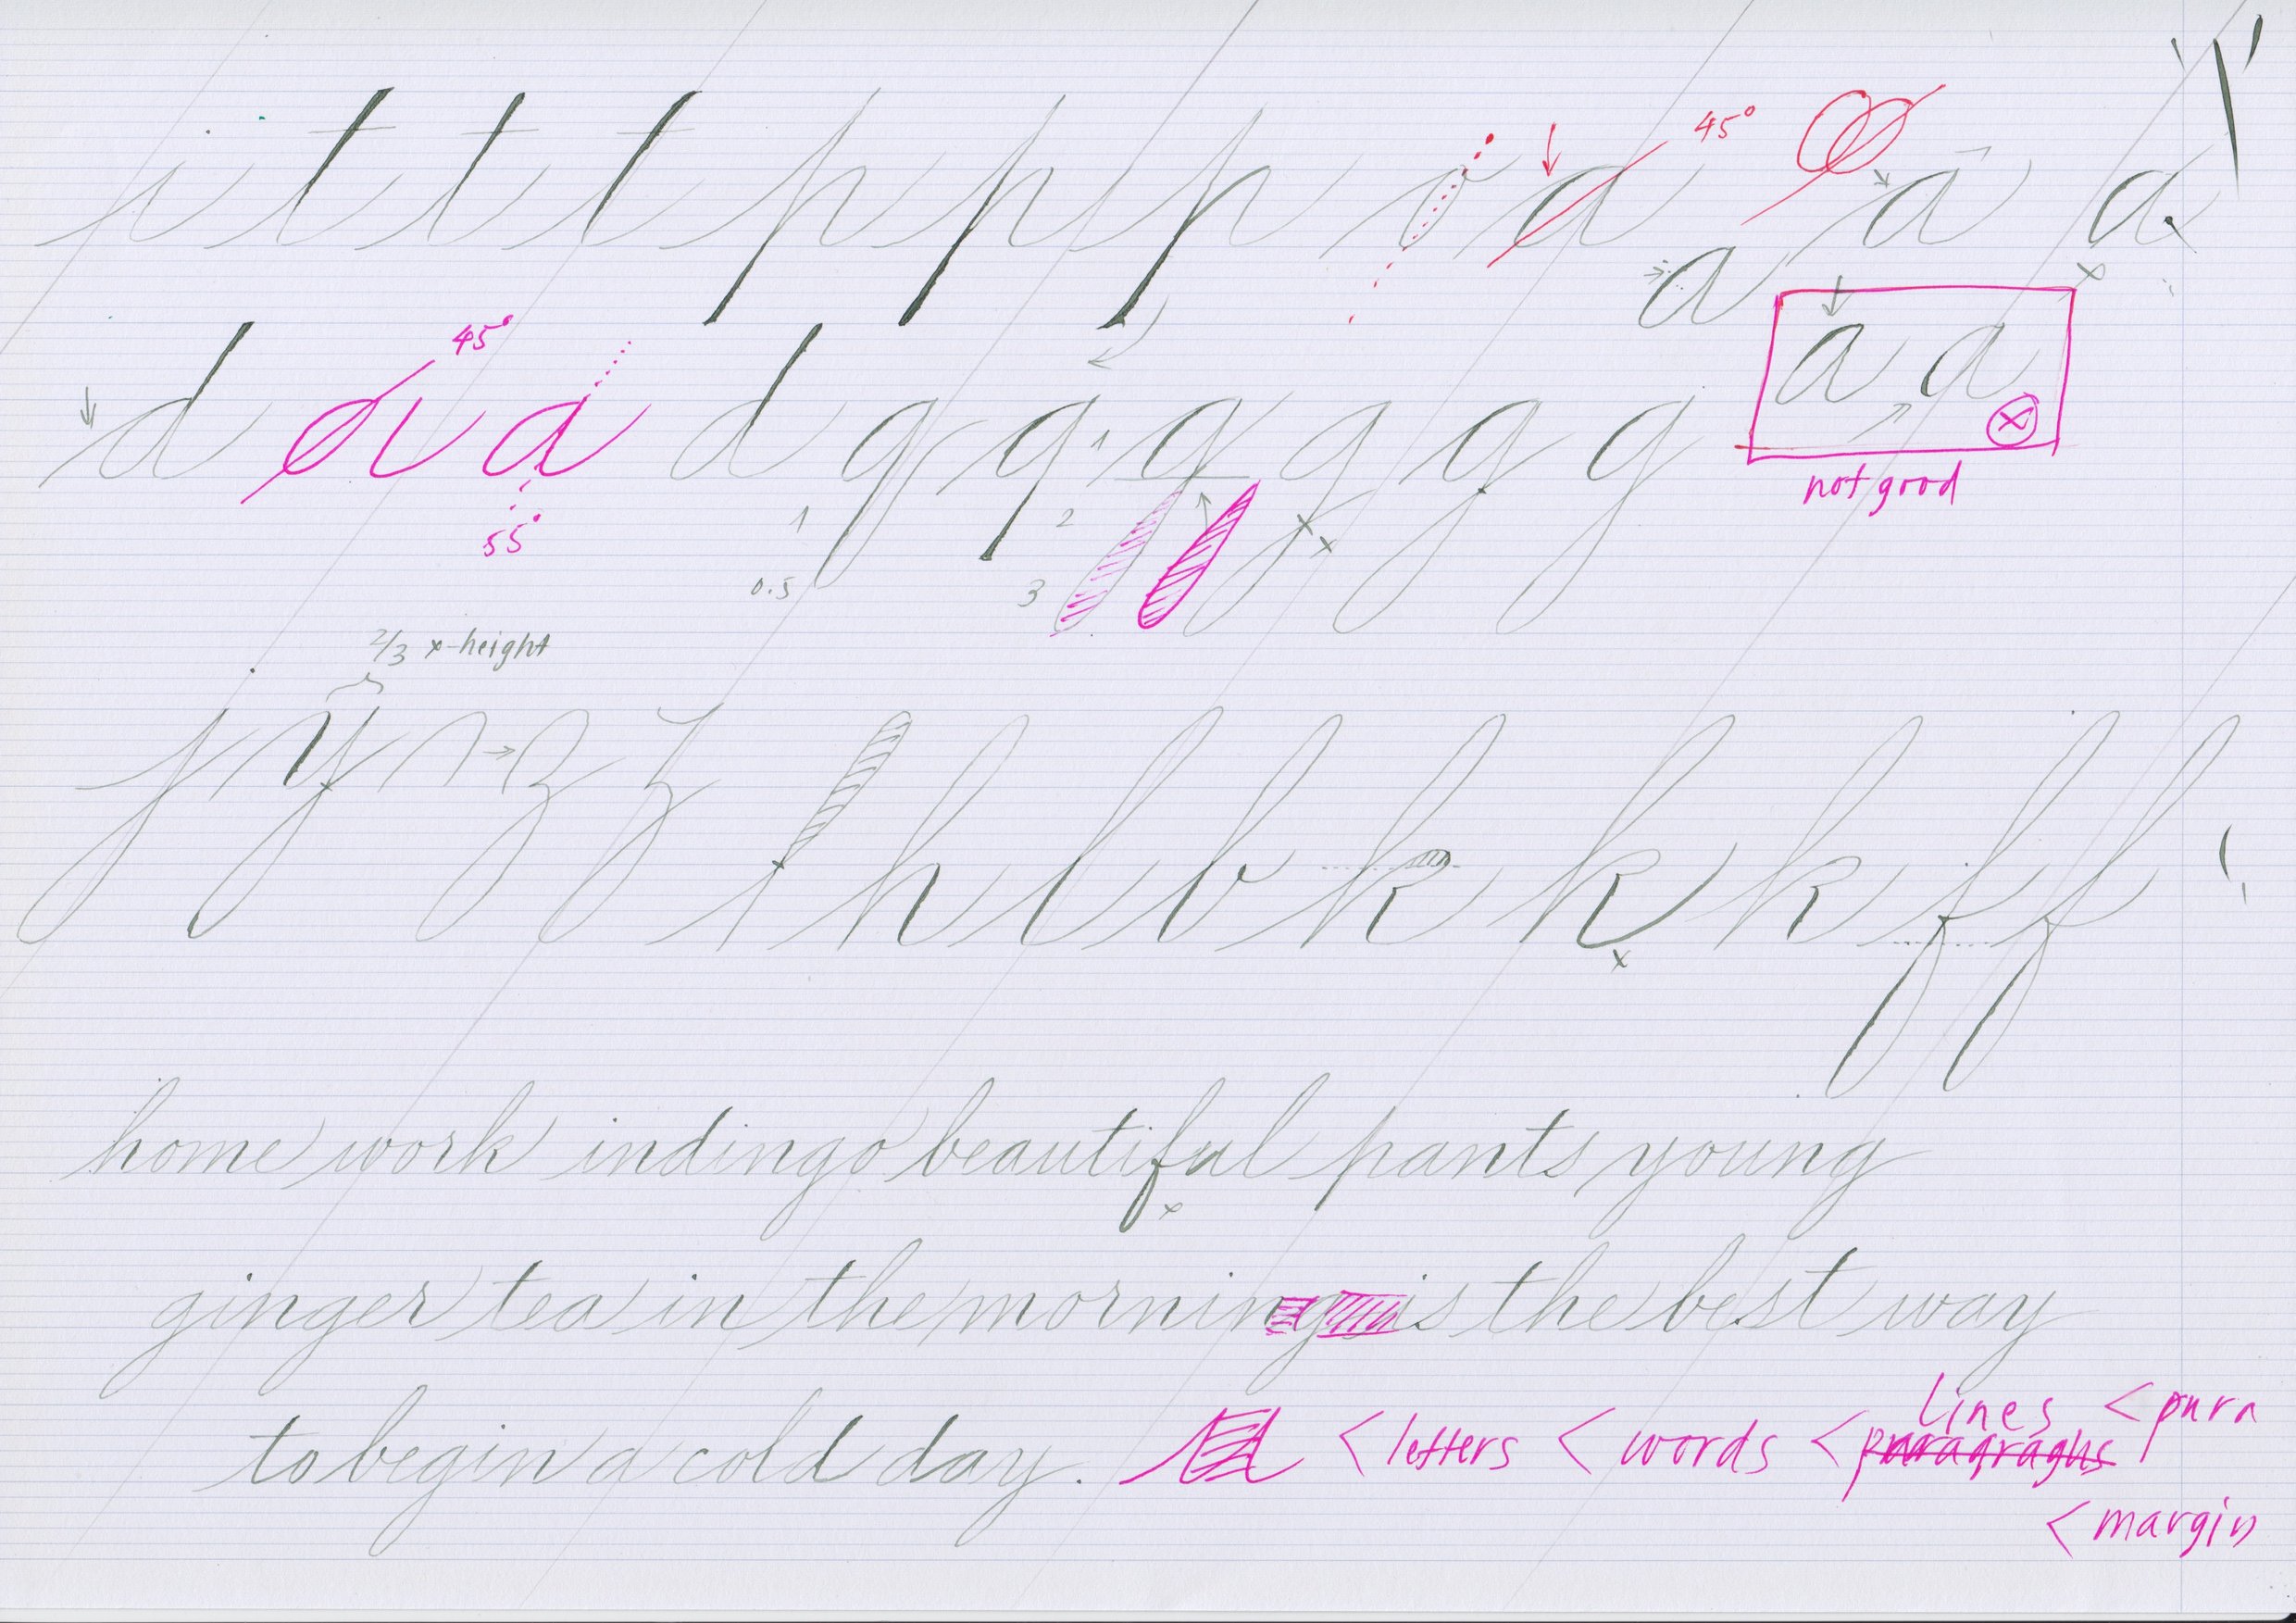 i t t t p p p o a 45° a a
a
d 45° a a d q q 1 a g g g a a
not good
55° 1 2
0.5 3
2/3 x-height
j y n → z z l h l b k k k f f
home work indingo beautiful pants young
ginger tea in the morning is the best way
lines < para
to begin a cold day. < letters < words < paragraghs
< margin